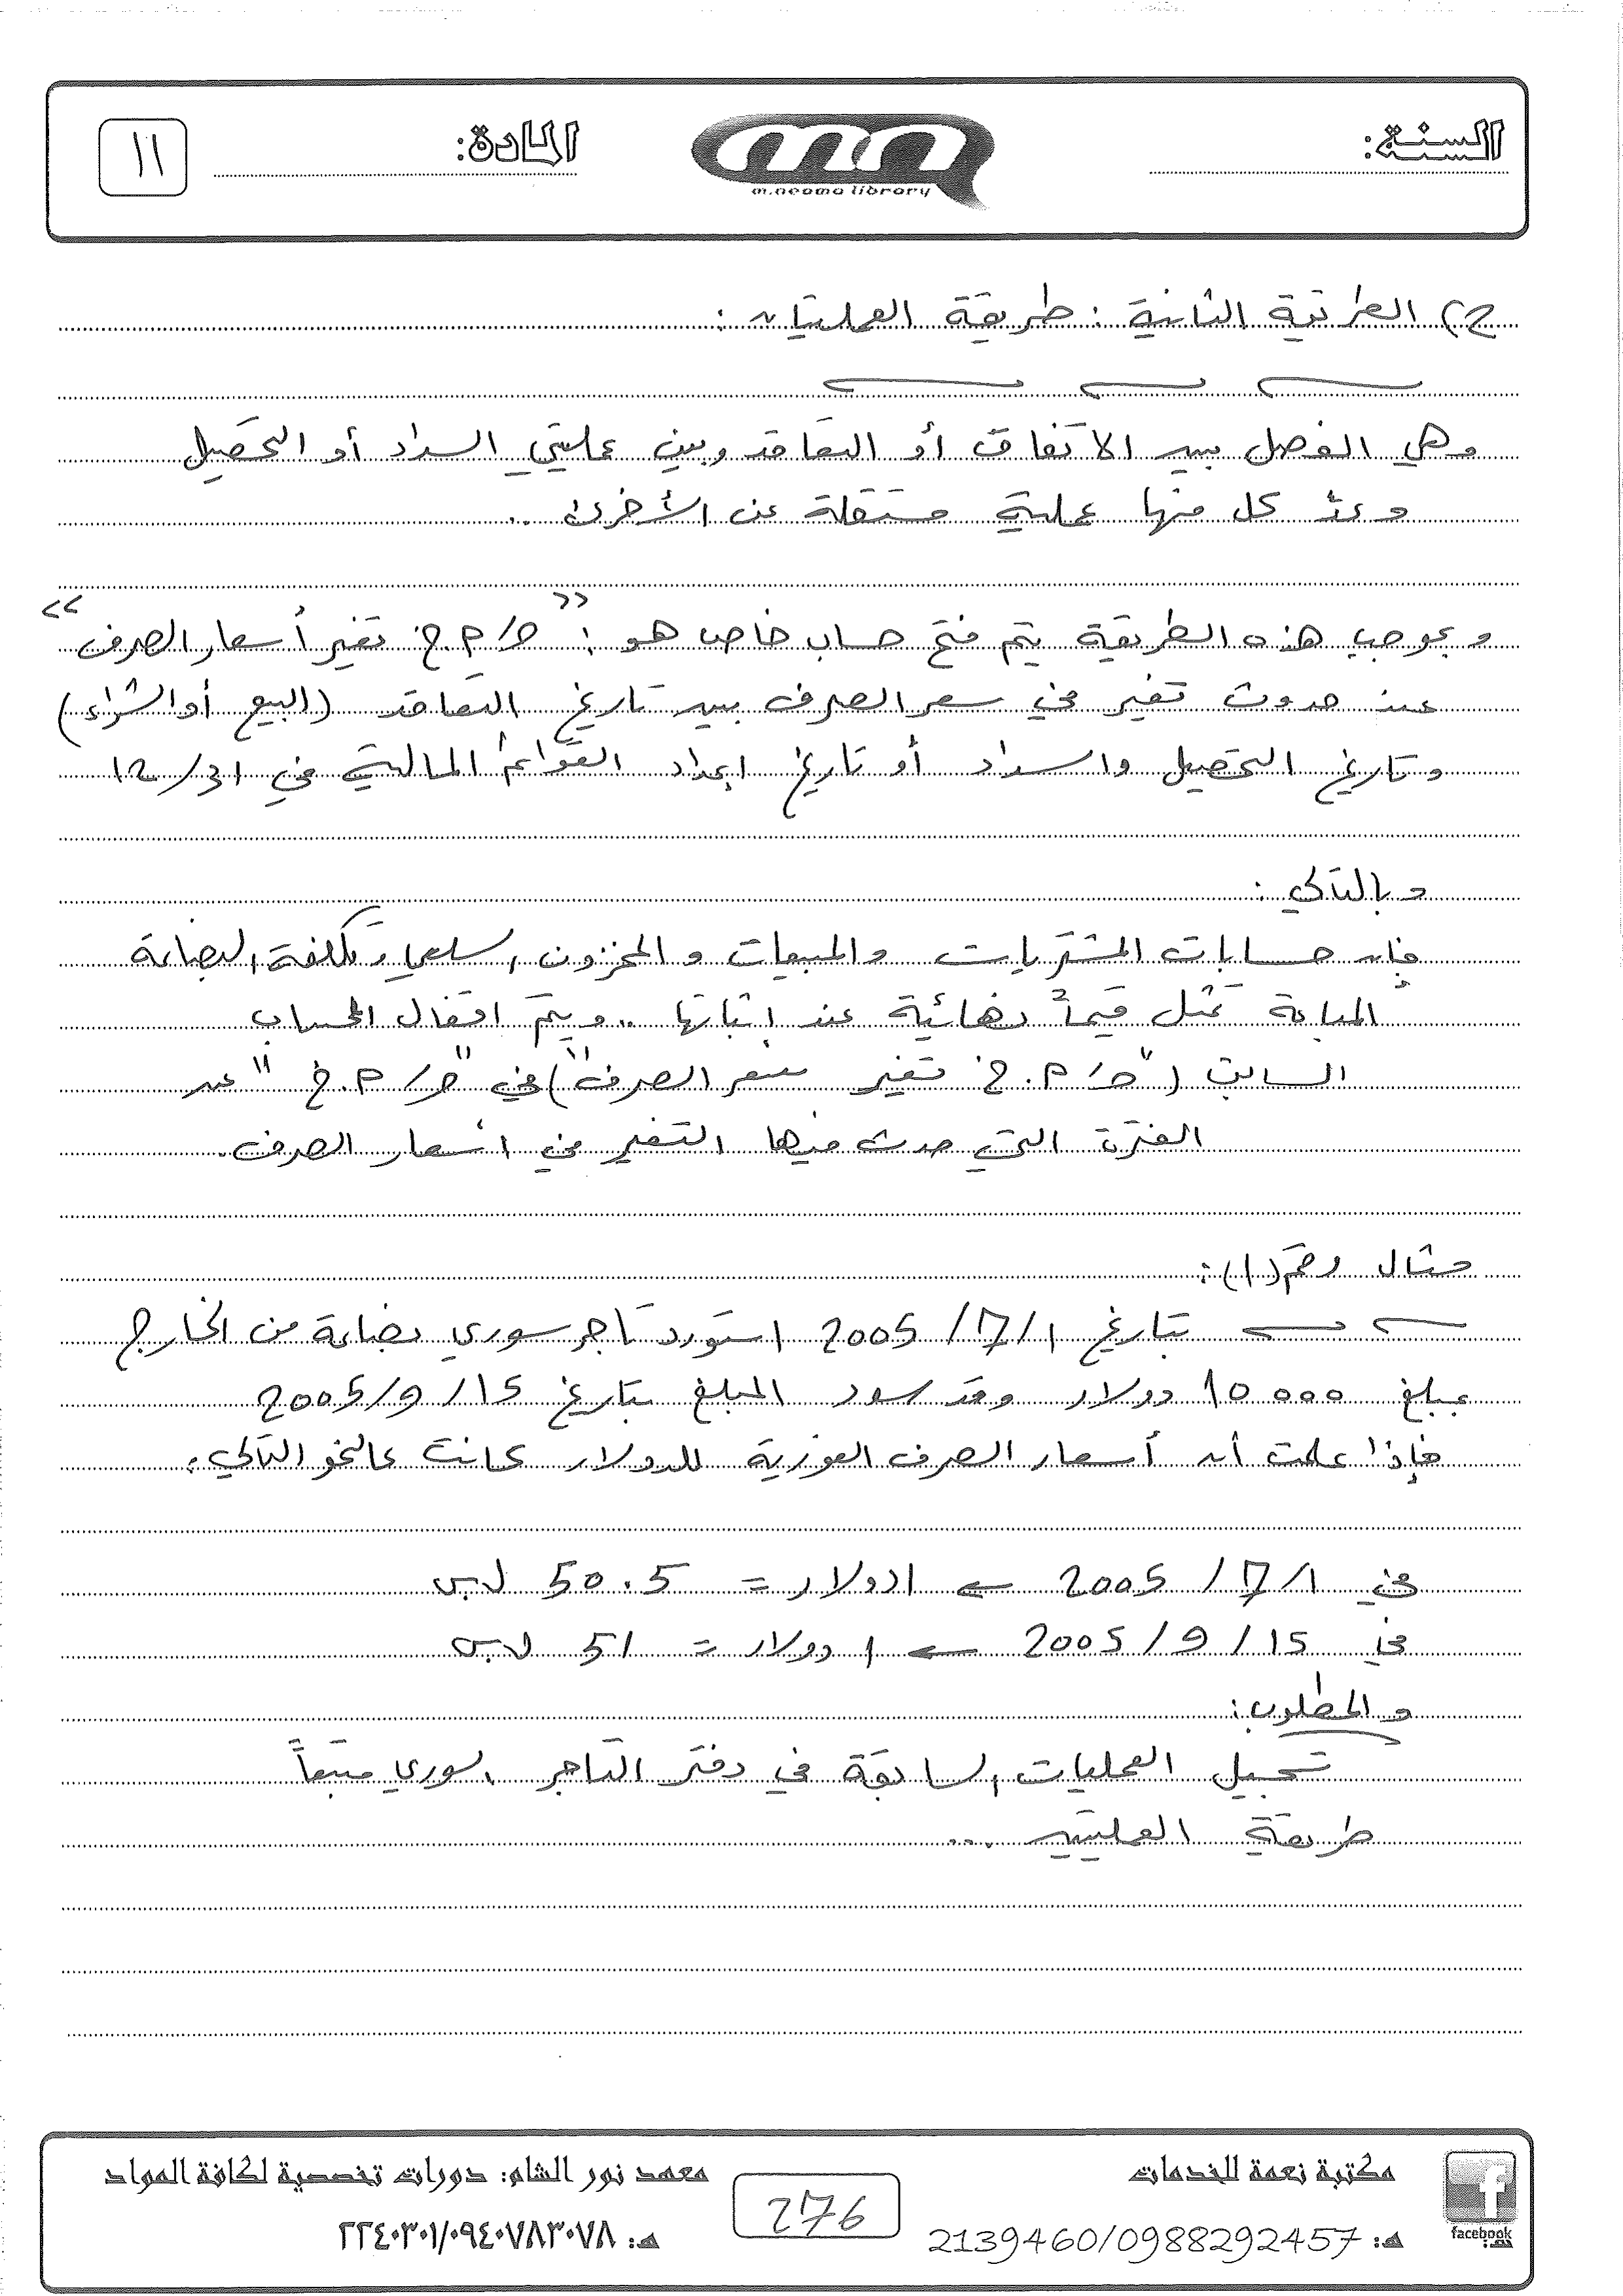 السنة:
m.neoma library
المادة:
١١
ح٢) الطريقة الثانية : طريقة العمليتان :
وهي الفصل بين الاتفاق أو التعاقد وبين عمليتي السداد أو التحصيل
وعدّ كل منها عملية مستقلة عن الأخرى ..
وبموجب هذه الطريقة يتم فتح حساب خاص هو : << ح/ م.خ. تغير أسعار الصرف >>
عند حدوث تغير في سعر الصرف بين تاريخ التعاقد (البيع أو الشراء)
وتاريخ التحصيل والسداد أو تاريخ إعداد القوائم المالية في 31/12
وبالتالي :
فإن حسابات المشتريات والمبيعات والمخزون السلعي وتكلفة البضاعة
المباعة تمثل قيماً نهائية عند إثباتها .. ويتم اقفال الحساب
السابق ("ح/ م.خ تغير سعر الصرف") في "ح/ م.خ" عن
الفترة التي حدث فيها التغير في أسعار الصرف.
مثال رقم (1) :
بتاريخ 1/7/2005 استورد تاجر سوري بضاعة من الخارج
بمبلغ 10000 دولار وقد سدد المبلغ بتاريخ 15/9/2005
فإذا علمت أن أسعار الصرف الفورية للدولار كانت كالنحو التالي:
في 1/7/2005 ← 1 دولار = 50.5 ل.س
في 15/9/2005 ← 1 دولار = 51 ل.س
والمطلوب:
تسجيل العمليات السابقة في دفتر التاجر السوري متبعاً
طريقة العمليتين ...
facebook
مكتبة نعمة للخدمات
هـ: 2139460/0988292457
276
معهد نور الشام: دورات تخصصية لكافة المواد
هـ: ٢٢٤٠٣٠١/٠٩٤٠٧٨٣٠٧٨